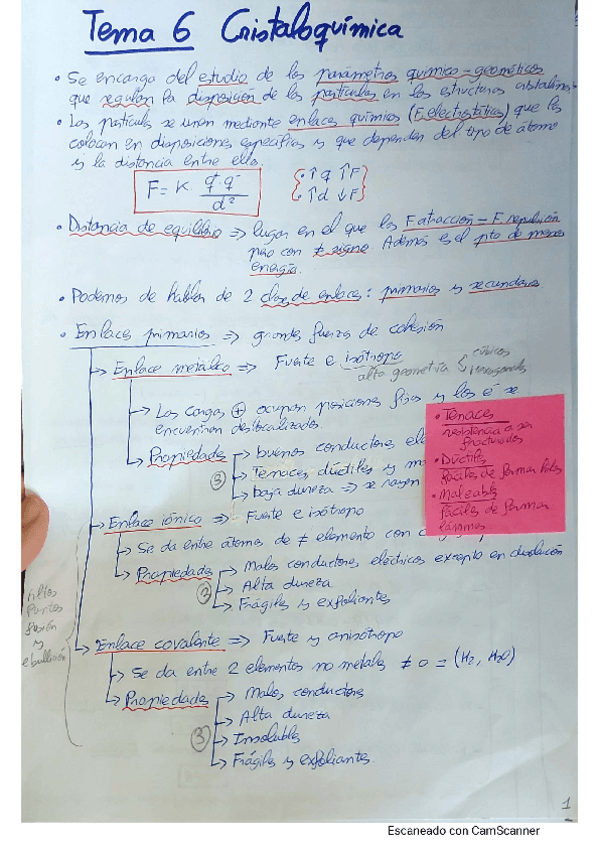 Tema 6 Cristaloquímica
• Se encarga del estudio de los parámetros químico-geométricos
que regulan la disposición de las partículas en las estructuras cristalinas
• Las partículas se unen mediante enlaces químicos (F. electrostática) que las
colocan en disposiciones específicas y que dependen del tipo de átomo
y la distancia entre ellos.
F = K · q⁺ q⁻ / d²
• ↑q ↑F
• ↑d ↓F
• Distancia de equilibrio => lugar en el que las F atracción = F repulsión
pero con ≠ signo Además es el pto de menos
energía.
• Podemos de hablar de 2 clases de enlaces: primarios y secundarios
• Enlaces primarios => grandes fuerzas de cohesión
→ Enlace metálico => Fuerte e isótropo
alta geometría
→ Las cargas ⊕ ocupan posiciones fijas y los é se
encuentran deslocalizados.
→ Propiedades
③
→ buenos conductores
→ Tenaces, dúctiles y
→ baja dureza => se rayan
• Tenaces
resistencia a ser
fracturados
• Dúctiles
fáciles de formar hilos
• Maleables
fáciles de formar
láminas
→ Enlace iónico => Fuerte e isótropo
→ Se da entre átomos de ≠ elemento con
→ Propiedades
②
→ Malos conductores eléctricos excepto en disolución
→ Alta dureza
→ Frágiles y exfoliantes
Altos
Puntos
fusión
y
ebullición
→ Enlace covalente => Fuerte y anisótropo
→ Se da entre 2 elementos no metales ≠ o = (H₂, H₂O)
→ Propiedades
③
→ Malos conductores
→ Alta dureza
→ Insolubles
→ Frágiles y exfoliantes.
1
Escaneado con CamScanner